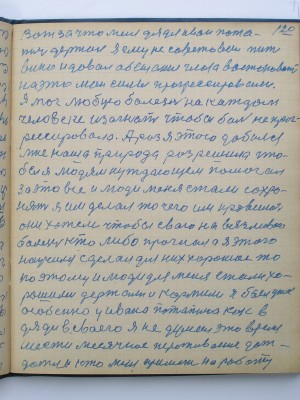 120
Вот за что меня дядя Иван пота-
пыч держал я ему не советовал пить
вино и давал обещание чтоб восстановить
на это мои силы прогрессировали.
Я мог любую болезнь на каждом
человеке изогнать чтобы боль не прог-
рессировала. А раз я этого добился
мне наша природа разрешила что-
бы я людям нуждающем помогал
за это все и люди меня стали сохра-
нять. Я им делал то чего им нравилось
они хотели чтобы своего на веки
болезнь кто либо прогнал а я этого
научился сделал для них хорошее то
по этому и люди для меня стали хо-
рошими держали и кормили я был уже
особенно у Ивана Потапыча как в
дяди своего я не думал это время
шести месячное переживание дож-
дать кто меня примет на работу